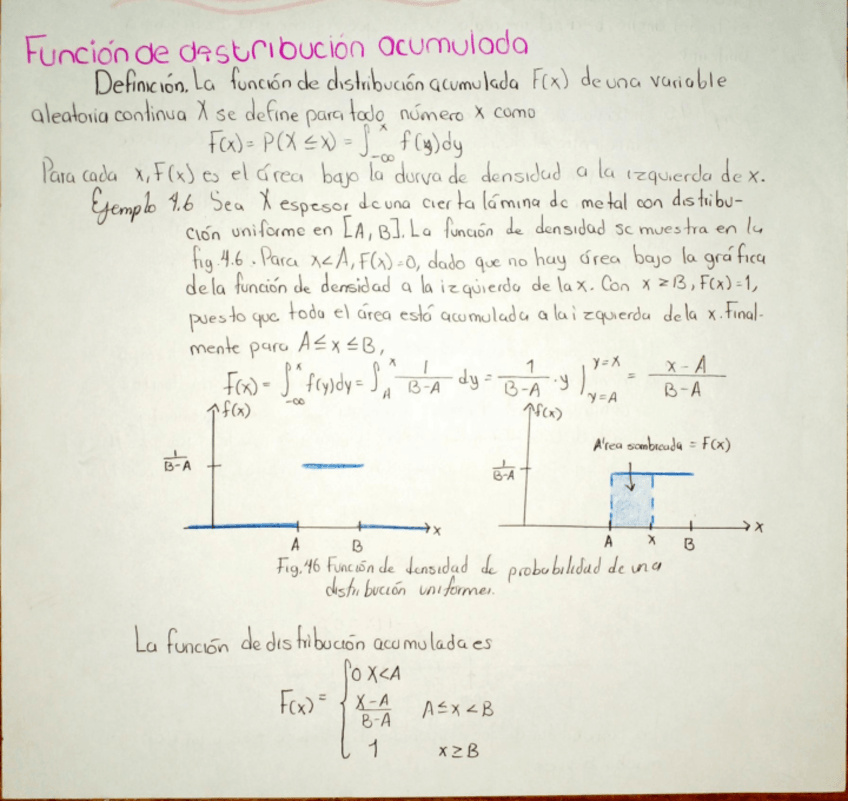 Función de destribución acumulada
Definición. La función de distribución acumulada F(x) de una variable
aleatoria continua X se define para todo número x como
F(x) = P(X ≤ x) = ∫_{-∞}^{x} f(y)dy
Para cada x, F(x) es el área bajo la durva de densidad a la izquierda de x.
Ejemplo 4.6 Sea X espesor de una cierta lámina de metal con distribu-
ción uniforme en [A, B]. La función de densidad se muestra en la
fig. 4.6. Para x<A, F(x)=0, dado que no hay área bajo la gráfica
de la función de densidad a la izquierda de la x. Con x ≥ B, F(x)=1,
puesto que toda el área está acumulada a la izquierda de la x. Final-
mente para A ≤ x ≤ B,
F(x) = ∫_{-∞}^{x} f(y)dy = ∫_{A}^{x} 1/(B-A) dy = 1/(B-A) · y ]_{y=A}^{y=x} = (x-A)/(B-A)
f(x)
1/(B-A)
A B x
f(x)
Área sombreada = F(x)
1/(B-A)
A x B x
Fig. 46 Función de densidad de probabilidad de una
distribución uniforme.
La función de distribución acumulada es
F(x) = { 0 X<A
(X-A)/(B-A) A ≤ x < B
1 x ≥ B